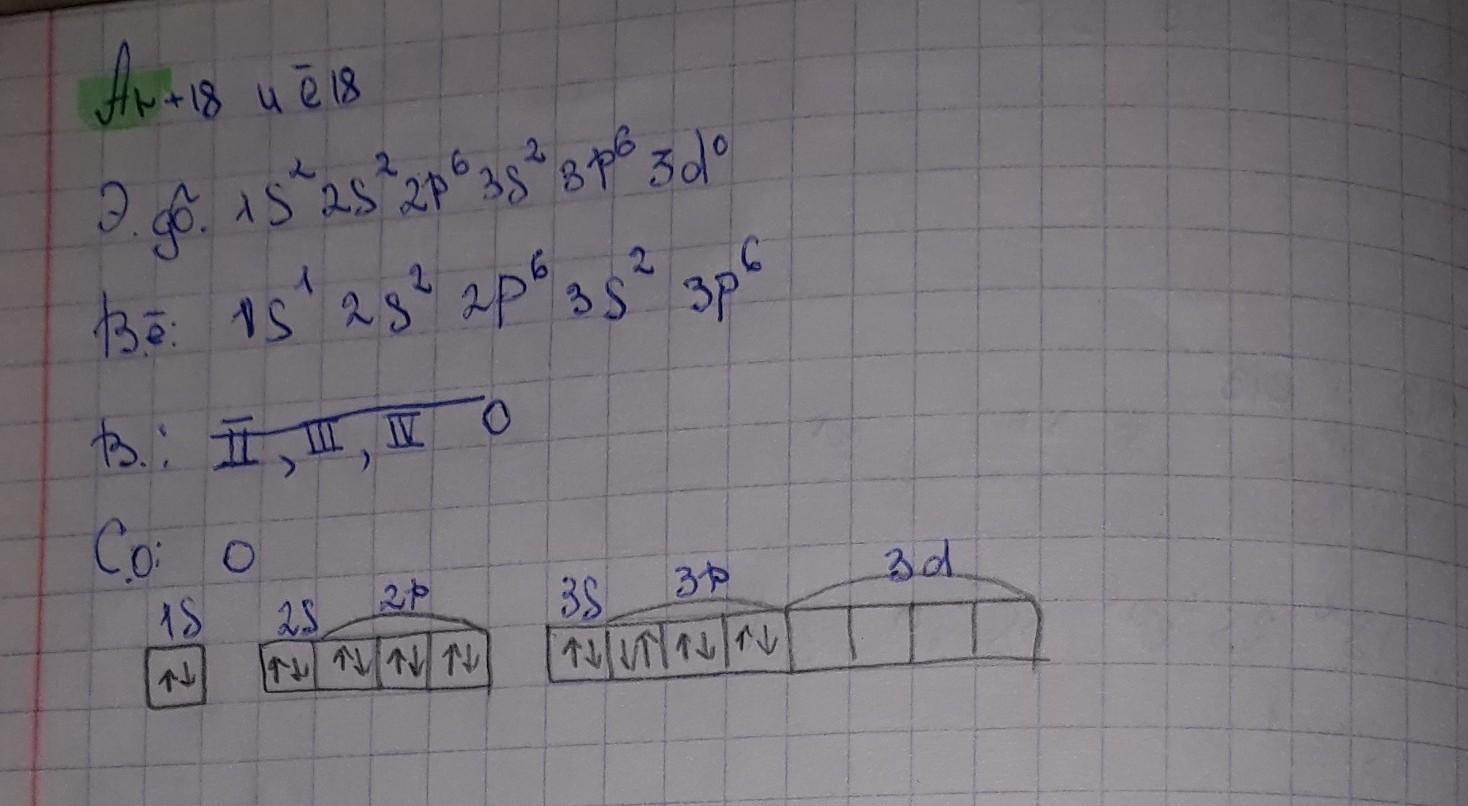 Ar +18 и ē 18
Э. ф. 1s² 2s² 2p⁶ 3s² 3p⁶ 3d⁰
В.ē: 1s¹ 2s² 2p⁶ 3s² 3p⁶
В.: II, III, IV 0
С.О: 0
1s 2s 2p 3s 3p 3d
↑↓ ↑↓ ↑↓ ↑↓ ↑↓ ↑↓ ↓↑ ↑↓ ↑↓